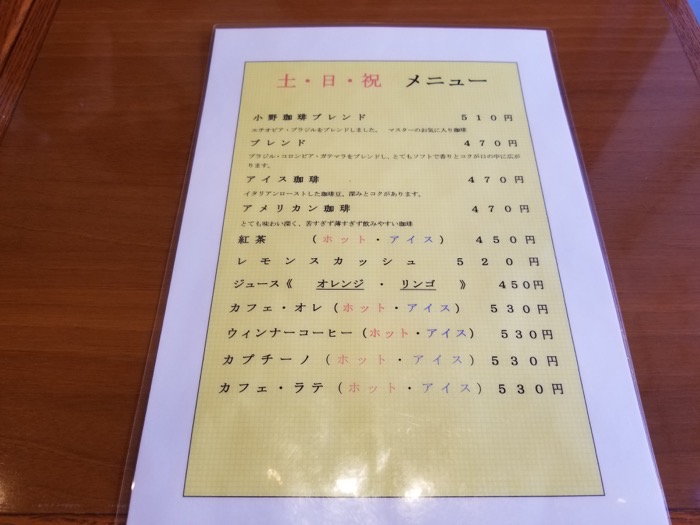 土・日・祝 メニュー
小野珈琲ブレンド ５１０円
エチオピア・ブラジルをブレンドしました。 マスターのお気に入り珈琲
ブレンド ４７０円
ブラジル・コロンビア・ガテマラをブレンドし、とてもソフトで香りとコクが口の中に広が
ります。
アイス珈琲 ４７０円
イタリアンローストした珈琲豆、深みとコクがあります。
アメリカン珈琲 ４７０円
とても味わい深く、苦すぎず薄すぎず飲みやすい珈琲
紅茶 （ホット・アイス） ４５０円
レモンスカッシュ ５２０円
ジュース《 オレンジ ・ リンゴ 》 ４５０円
カフェ・オレ（ホット・アイス） ５３０円
ウィンナーコーヒー（ホット・アイス） ５３０円
カプチーノ（ホット・アイス） ５３０円
カフェ・ラテ（ホット・アイス） ５３０円